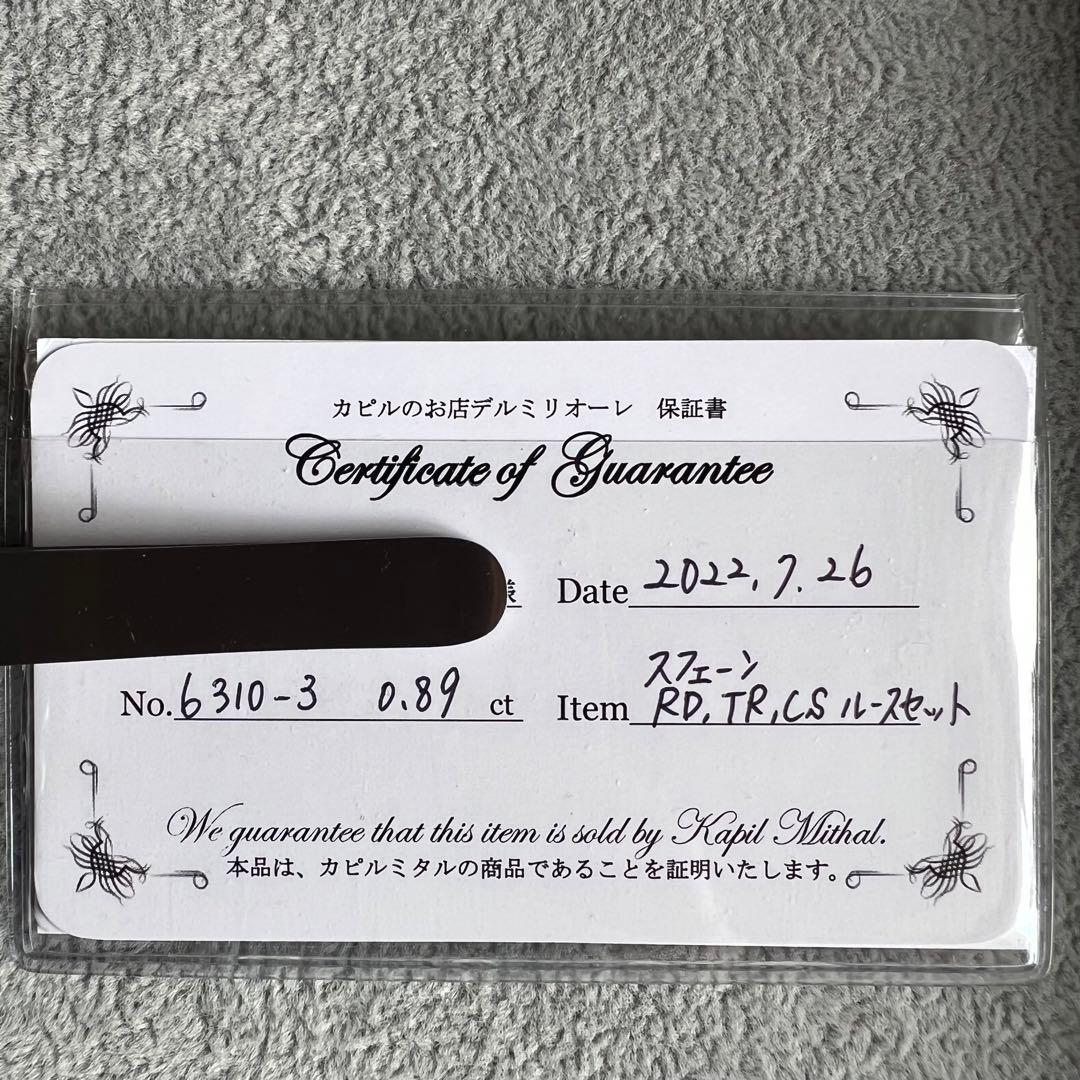 カピルのお店デルミリオーレ 保証書
Certificate of Guarantee
様 Date 2022.7.26
No. 6310-3 0.89 ct Item スフェーン
RD, TR, CS ルースセット
We guarantee that this item is sold by Kapil Mithal.
本品は、カピルミタルの商品であることを証明いたします。